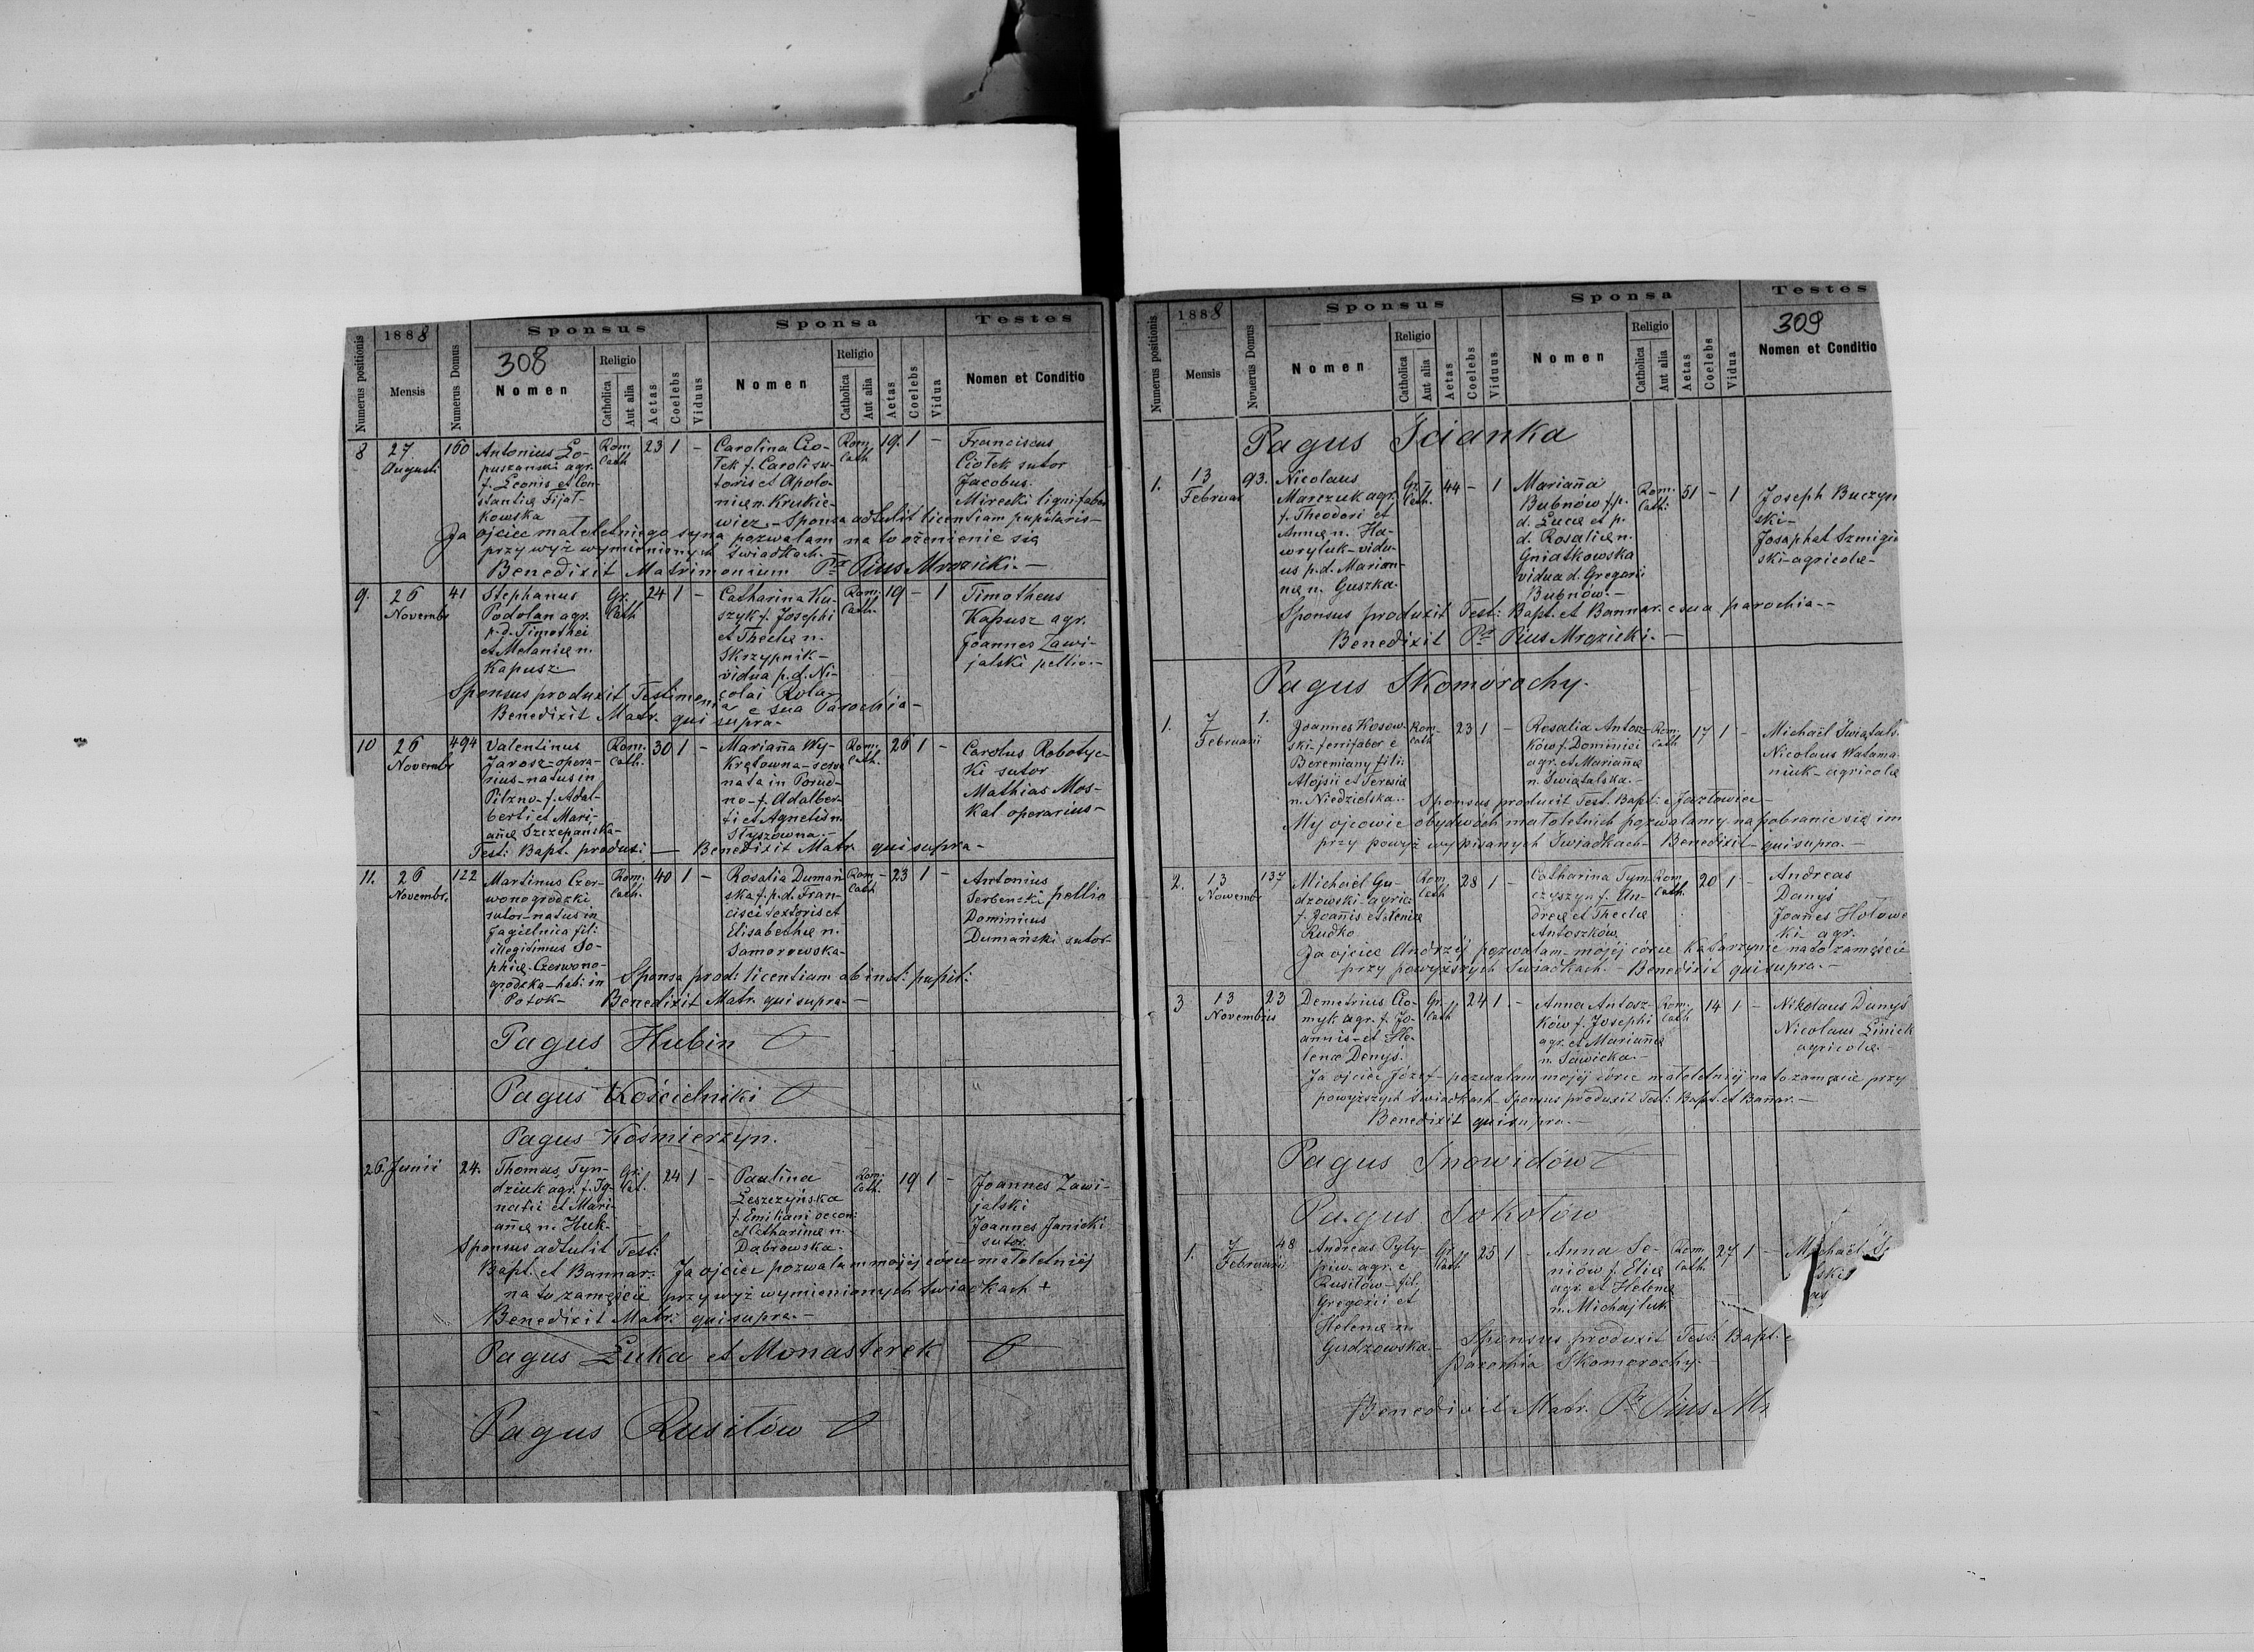 Numerus positionis
1888
Mensis
Numerus Domus
Sponsus
308
Nomen
Religio
Catholica
Aut alia
Aetas
Coelebs
Viduus
Sponsa
Nomen
Religio
Catholica
Aut alia
Aetas
Coelebs
Vidua
Testes
Nomen et Conditio
8
27
Augusti
160
Antonius Ło-
puszański agr.
f. Leonis et Con-
stantiæ Fijał-
kowska
Rom.
Cath
23 1 –
Carolina Cio-
łek f. Caroli su-
toris et Apolo-
niæ n. Krukie-
wicz – Sponsa adtulit licentiam pupilaris –
Rom.
Cath
19. 1 –
Franciscus
Ciołek sutor
Jacobus
Mirecki lignifaber
Ja ojciec małoletniego syna pozwalam na to ożenienie się
przy wyż wymienionych świadkach.
Benedixit Matrimonium Pr Pius Mrozicki. –
9.
26
Novembr
41
Stephanus
Podolan agr.
p.d. Timothei
et Melaniæ n.
Kapusz
Gr.
Cath
24 1 –
Catharina Ku-
szyk f. Josephi
et Theclæ n.
Skrzypnik –
vidua p.d. Ni-
colai Rola
Rom.
Cath.
19 – 1
Timotheus
Kapusz agr.
Joannes Zawi-
jalski pellio. –
Sponsus produxit Testimonia e sua Parochia –
Benedixit Matr. qui supra –
10
26
Novembr
494
Valentinus
Jarosz – opera-
rius – natus in
Pilzno – f. Adal-
berti et Mari-
añæ Szczepańska –
Rom.
Cath.
30 1 –
Mariaña Wy-
krętowna –
nata in Porud-
no – f. Adalber-
ti et Agnetis n.
Styszowna. –
Rom.
Cath.
26 1 –
Carolus Robotyc-
ki sutor
Mathias Mos-
kal operarius –
Test: Bapt. produxi: — Benedixit Matr. qui supra –
11.
26
Novembr.
122
Martinus Czer-
wonogrodzki
sutor – natus in
Jagielnica fil:
illegitimus So-
phiæ Czerwono-
grodzka – hab: in
Potok –
Rom.
Cath.
40 1 –
Rosalia Dumań-
ska f. p.d. Fran-
cisci textoris et
Elisabethæ n.
Samorowska –
Rom.
Cath
23 1 –
Antonius
Serbenski pellio
Dominicus
Dumański sutor –
Sponsa prod: licentiam ab inst: pupil:
Benedixit Matr. qui supra –
Pagus Hubin
Pagus Kościelniki
Pagus Kośmierzyn.
26. Junii
24.
Thomas Tyn-
dziuk agr. f. Ig-
natii et Mari-
añæ n. Huk –
Gr.
Cat.
24 1 –
Paulina
Leszczyńska
f. Emiliani oecon:
et Catharinæ n.
Dąbrowska.
Rom.
Cath.
19 1 –
Joannes Zawi-
jalski
Joannes Janicki
sutor.
Sponsus adtulit Test:
Bapt. et Bannar: Ja ojciec pozwalam mojej córce małoletniej
na to zamęście przy wyż wymienionych świadkach +
Benedixit Matr: qui supra. –
Pagus Łuka et Monasterek
Pagus Rusiłów
Numerus positionis
1888
Mensis
Numerus Domus
Sponsus
Nomen
Religio
Catholica
Aut alia
Aetas
Coelebs
Viduus
Sponsa
Nomen
Religio
Catholica
Aut alia
Aetas
Coelebs
Vidua
Testes
309
Nomen et Conditio
Pagus Ścianka
1.
13
Februar
93.
Nicolaus
Marczuk agr.
f. Theodori et
Annæ n. Ha-
wryluk – vidu-
us p.d. Marian-
næ n. Guszka.
Gr.
Cath.
44 – 1
Mariaña
Bubnów f. p.
d. Lucæ et p.
d. Rosaliæ n.
Gniatkowska
vidua d. Gregorii
Bubnów. –
Rom.
Cath:
51 – 1
Joseph Buczyn
ski –
Josaphat Szmigi
ski – agricolæ –
Sponsus produxit Test: Bapt. et Bannar. e sua parochia. –
Benedixit Pr Pius Mrozicki. –
Pagus Skomorochy.
1.
7
Februarii
1.
Joannes Kosow-
ski – ferrifaber e
Beremiany fili:
Alojsii et Teresiæ
n. Niedzielska. –
Rom.
Cath
23 1 –
Rosalia Antosz-
ków f. Dominici
agr. et Mariañæ
n. Świątalska. –
Rom.
Cath
17 1 –
Michaël Świątals.
Nicolaus Watama-
niuk – agricolæ
Sponsus produxit Test. Bapt: e Jazłowiec –
My ojcowie obydwoch małoletnich pozwalamy na pobranie się im
przy powyż wypisanych Świadkach – Benedixit – qui supra. –
2.
13
Novembr
137
Michaël Gu-
dzowski – agric:
f. Joañis et Helenæ
Rudko
Rom
Cath
28 1 –
Catharina Sym-
czyszyn f. An-
dreæ et Theclæ
Antoszków
Rom
Cath.
20 1 –
Andreas
Danyś
Joañes Hołowe
ki agr.
Ja ojciec Andrzéj pozwalam mojéj córce Katarzynie na to zamęście
przy powyższych Świadkach. – Benedixit qui supra. –
3
13
Novembris
23
Demetrius Cio-
myk agr. f. Jo-
annis – et He-
lenæ Denyś.
Gr.
Cath
24 1. –
Anna Antosz-
ków f. Josephi
agr. et Mariañæ
n. Sawicka. –
Rom.
Cath
14 1 –
Nikolaus Danyś
Nicolaus Linick
agricolæ. –
Ja ojciec Józef – pozwalam mojéj córce małoletniéj na to zamęście przy
powyższych Świadkach – Sponsus produxit Test: Bapt. et Bañar. –
Benedixit qui supra. –
Pagus Snowidów
Pagus Sokołów
1.
7
Februarii
48
Andreas Pyly-
piw – agr. e
Rusiłów – fil.
Gregorii et
Helenæ n.
Gudzowska. –
Gr.
Cath
25 1 –
Anna Se-
niów f. Eliæ
agr. et Helenæ
n. Michajluk
Rom.
Cath.
27 1 –
Michaël
Sponsus produxit Test: Bapt. e
parochia Skomorochy. –
Benedixit Matr. Pr Pius Mr